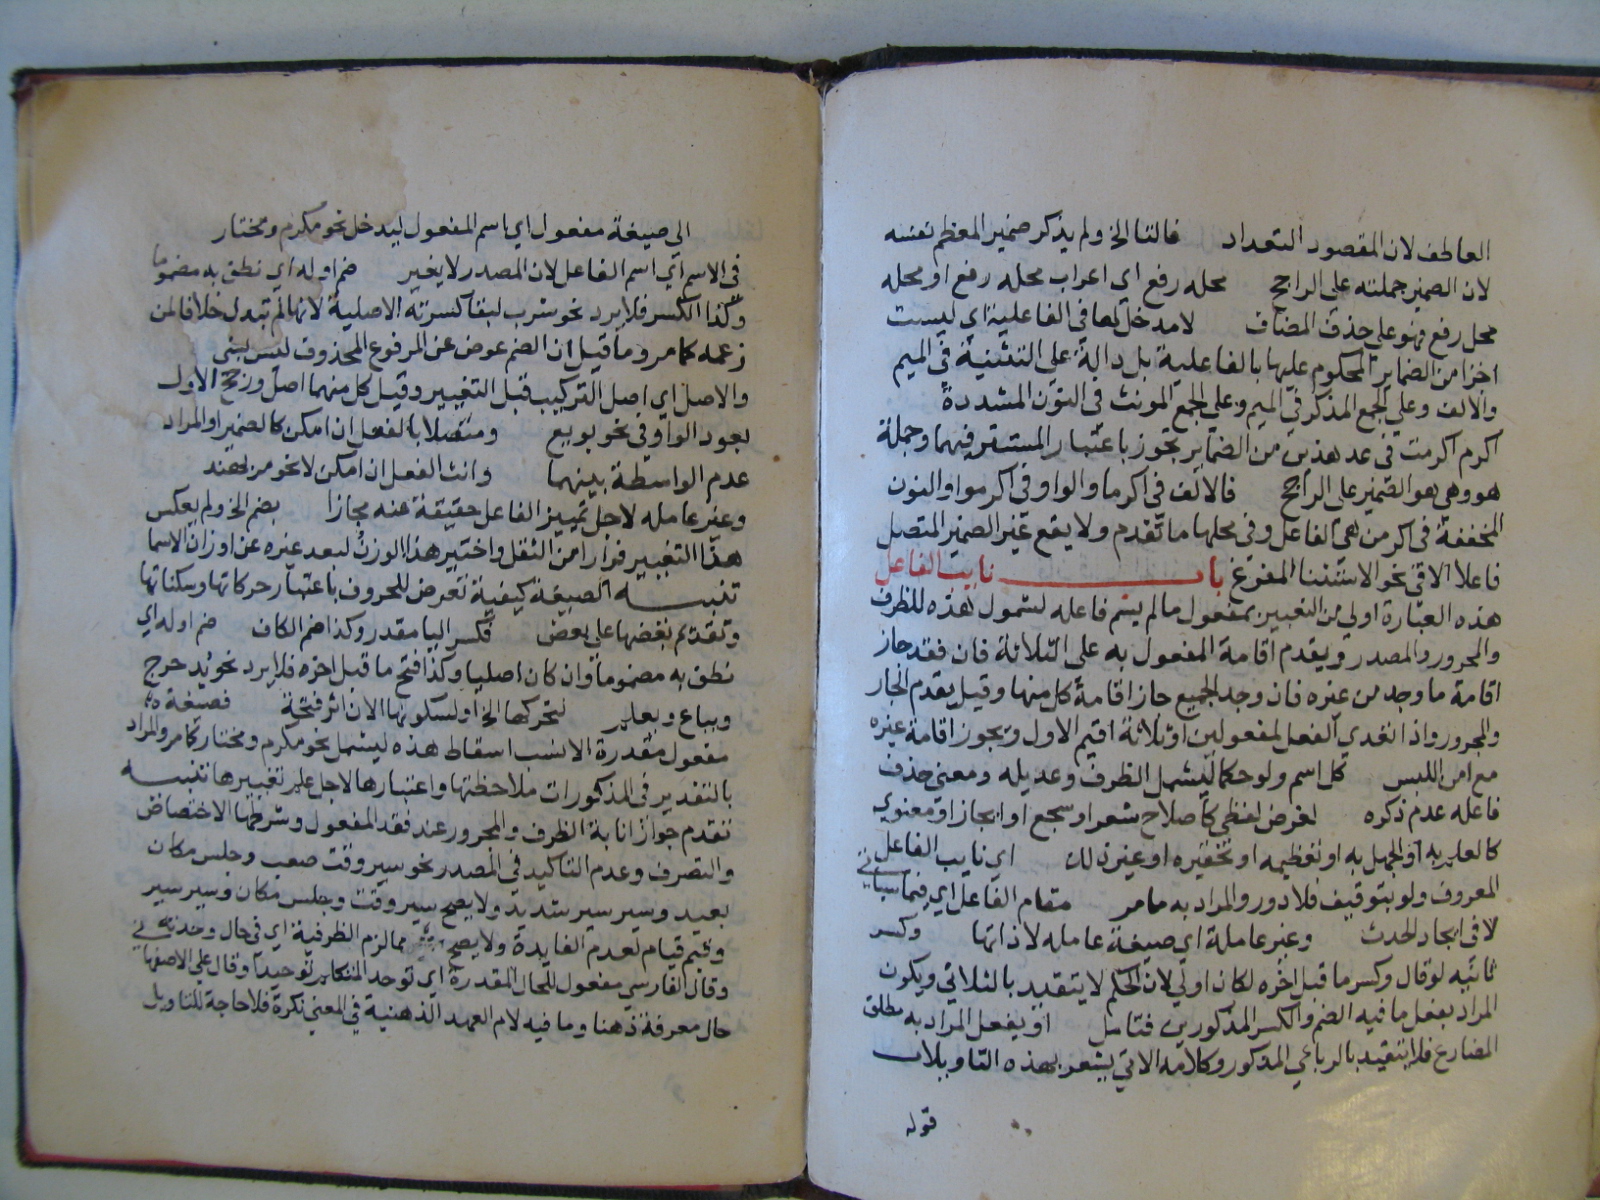 العاطف لان المقصود التعداد فالتا الخ ولم يذكر ضمير المعظم نفسه
لان الضمير جملته على الراجح محله رفع اي اعراب محله رفع او محله
محل رفع فهو على حذف المضاف لا مدخل لها في الفاعلية اي ليست
اجزا من الضماير المحكوم عليها بالفاعلية بل دالة على التثنية في الميم
والالف وعلى الجمع المذكر في الميم وعلى الجمع المونث في النون المشددة
اكرم اكرمت في عد هذين من الضماير تجوز باعتبار المستتر فيهما وجملة
هو وهي هو الضمير على الراجح فالالف في اكرما والواو في اكرموا والنون
المخففة في اكرمن هي الفاعل وفي محلها ما تقدم ولا يقع غير الضمير المتصل
فاعلا الا في نحو الاستثنا المفرغ باب نايب الفاعل
هذه العبارة اولى من التعبير بمفعول ما لم يسم فاعله لشمول هذه للظرف
والمجرور والمصدر ويقدم اقامة المفعول به على الثلاثة فان فقد جاز
اقامة ما وجد من غيره فان وجد الجميع جاز اقامة كل منها وقيل يقدم الجار
والمجرور واذا تعدي الفعل لمفعولين او ثلاثة اقيم الاول ويجوز اقامة غيره
مع امن اللبس كل اسم ولو حكما ليشمل الظرف وعديله ومعنى حذف
فاعله عدم ذكره لغرض لفظي كاصلاح شعر او سجع او ايجاز او معنوي
كالعلم به او الجهل به او تعظيمه او تحقيره او غير ذلك اي نايب الفاعل
المعروف ولو بتوقيف فلا دور والمراد به ما مر مقام الفاعل اي فيما سياتي
لا في ايجاد الحدث وغير عاملة اي صيغة عامله لا ذاتها وكسر
ثانيه لو قال وكسر ما قبل اخره لكان اولى لان الحكم لا يتقيد بالثلاثي ويكون
المراد بفعل ما فيه الضم والكسر المذكورين فتامل او يفعل المراد به مطلق
المضارع فلا يتقيد بالرباعي المذكور وكلامه الاتي يشعر بهذه التاويلات
قوله
الى صيغة مفعول اي اسم المفعول ليدخل نحو مكرم ومختار
في الاسم اي اسم الفاعل لان المصدر لا يغير ضم اوله اي نطق به مضموما
وكذا الكسر فلا يرد نحو شرب لبقا كسرته الاصلية لانها لم تبدل خلافا لمن
زعمه كما مر وما قيل ان الضم عوض عن المرفوع المحذوف ليس بشي
والاصل اي اصل التركيب قبل التغيير وقيل كل منهما اصل ورجح الاول
بعود الواو في نحو بويع ومتصلا بالفعل ان امكن كالضمير او المراد
عدم الواسطة بينهما وانث الفعل ان امكن لا نحو مر بهند
وغير عامله لاجل تمييز الفاعل حقيقة عنه مجازا بضم الخ ولم يعكس
هذا التغيير فرارا من الثقل واختير هذا الوزن لبعد غيره عن اوزان الاسما
تنبيه الصيغة كيفية تعرض للحروف باعتبار حركاتها وسكناتها
وتقدم بعضها على بعض فكسر اليا مقدر وكذا ضم الكاف ضم اوله اي
نطق به مضموما وان كان اصليا وكذا فتح ما قبل اخره فلا يرد نحو يد حرج
ويباع ويعلم لتحركها الخ او لسكونها الان اثر فتحة فصيغة
مفعول مقدرة الانسب اسقاط هذه ليشمل نحو مكرم ومختار كما مر والمراد
بالتقدير في المذكورات ملاحظتها واعتبارها لاجل علم تغييرها تنبيه
تقدم جواز انابة الظرف والمجرور عند فقد المفعول وشرطها الاختصاص
والتصرف وعدم التاكيد في المصدر نحو سير وقت صعب وجلس مكان
بعيد وسير سير شديد ولا يصح سير وقت وجلس مكان وسير سير
وقيم قيام لعدم الفايدة ولا يصح مما لزم الظرفية اي في حال وحدته في
وقال الفارسي مفعول للحال المقدرة اي توحد المتكلم توحيدا وقال على الاصفها
حال معرفة ذهنا وما فيه لام العهد الذهنية في المعنى نكرة فلا حاجة للتاويل